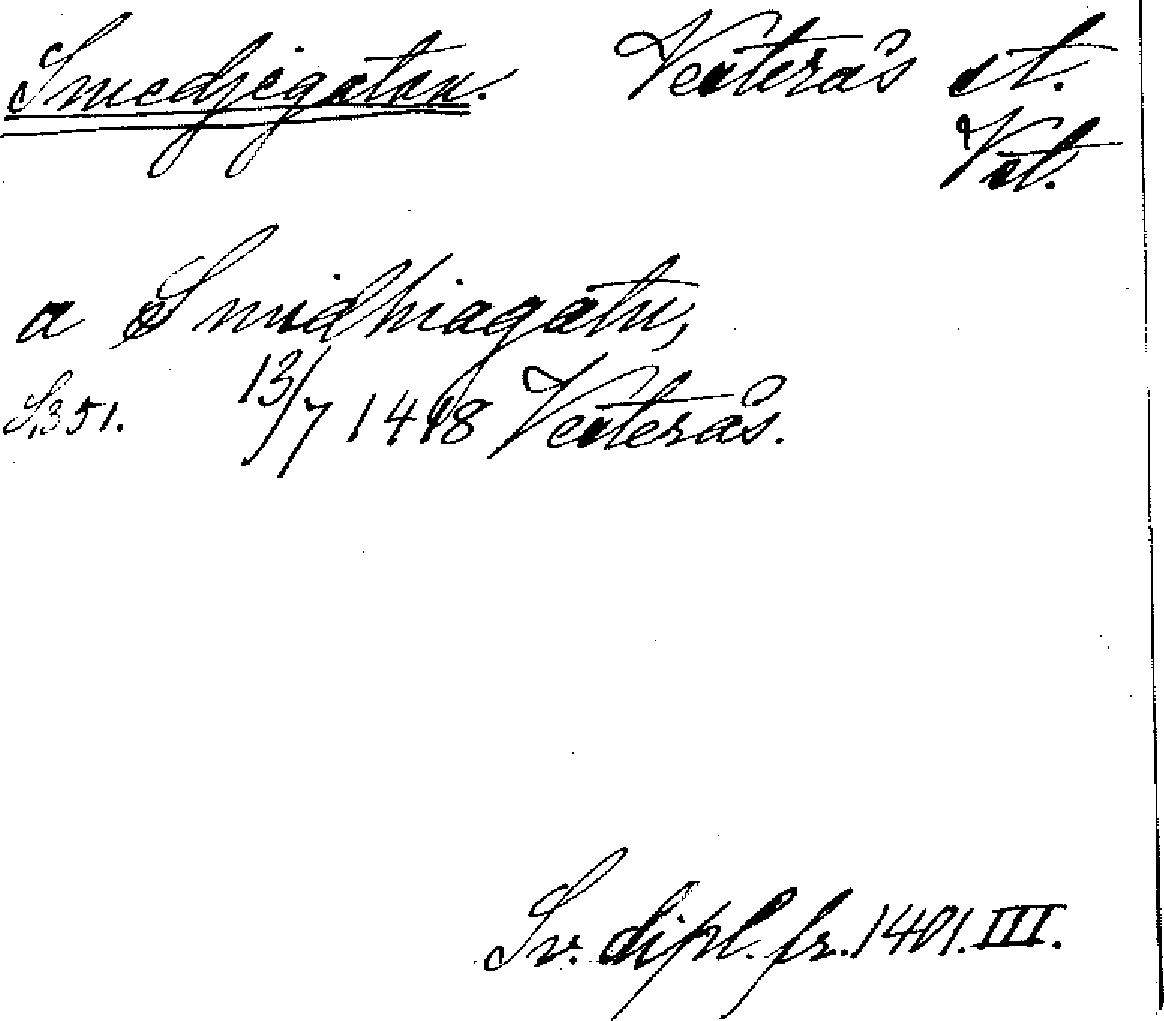 Smedjegatan. Västerås st.
Vstl.
a Smidhiagatu,
S. 351. 13/7 1418 Västerås.
Sv. dipl. fr. 1401. III.